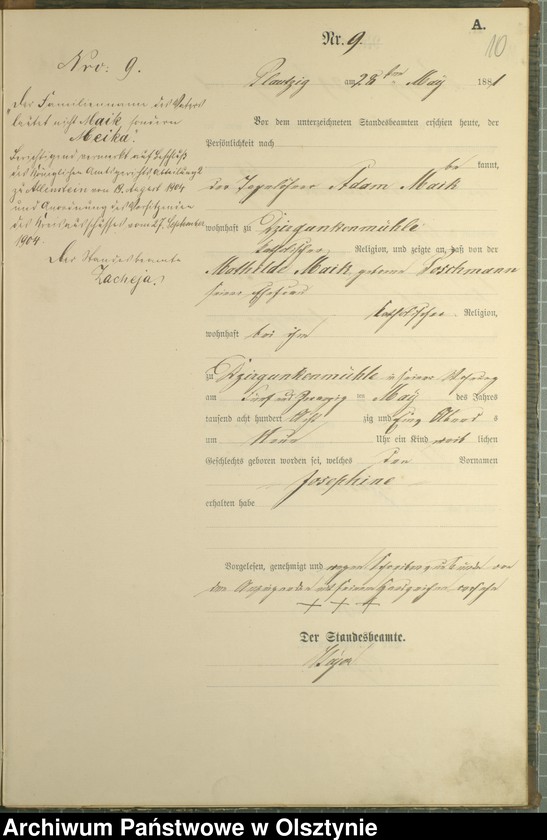 A.
10
Nr. 9.
Plautzig am 28ten May 1881
Vor dem unterzeichneten Standesbeamten erschien heute, der
Persönlichkeit nach
be kannt,
der Adam Maik
wohnhaft zu Dziergunkenmühle
katholischer Religion, und zeigte an, daß von der
Mathilde Maik geborene Poschmann
seiner Ehefrau
katholischer Religion,
wohnhaft bei ihm
zu Dziergunkenmühle in seiner Wohnung
am fünf und zwanzig ten May des Jahres
tausend acht hundert acht zig und eins Abends
um Neun Uhr ein Kind weib lichen
Geschlechts geboren worden sei, welches den Vornamen
Josephine
erhalten habe
Vorgelesen, genehmigt und wegen
von dem Anzeigenden mit seinem Handzeichen versehen
+ + +
Der Standesbeamte.
Nro: 9.
"Der Familienname des Vaters
lautet nicht Maik sondern
Meika."
Berichtigend vermerkt auf Beschluß
des Königlichen Amtsgerichts, Abteilung 2
zu Allenstein vom 19. August 1904
und Anordnung des Vorsitzenden
des Kreisausschusses vom 27. September
1904.
Der Standesbeamte
Zacheja.
Archiwum Państwowe w Olsztynie